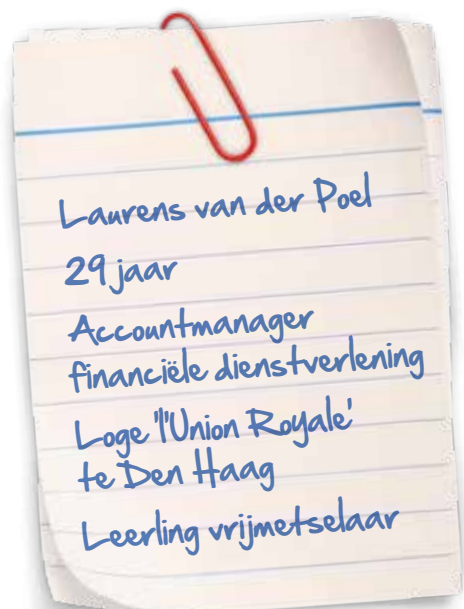 Laurens van der Poel
29 jaar
Accountmanager
financiële dienstverlening
Loge 'l'Union Royale'
te Den Haag
Leerling vrijmetselaar